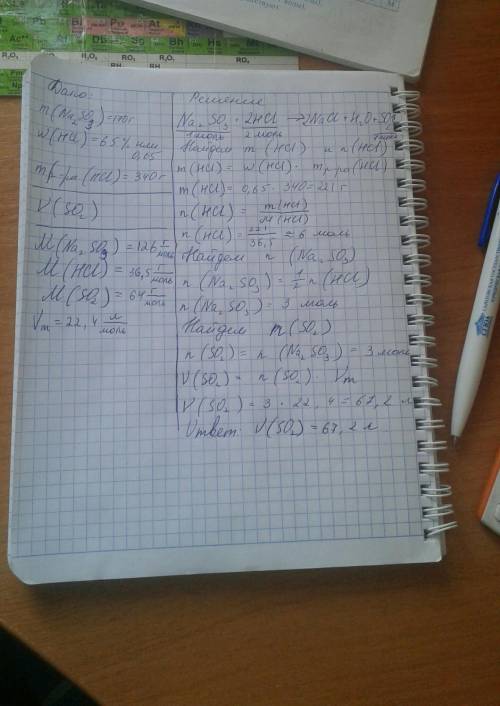 Дано:
m(Na₂SO₃)=170г
w(HCl)=65% или
0,65
mр-ра(HCl)=340г
V(SO₂)
M(Na₂SO₃)=126 г/моль
M(HCl)=36,5 г/моль
M(SO₂)=64 г/моль
Vm=22,4 л/моль
Решение
Na₂SO₃+2HCl→2NaCl+H₂O+SO₂
1 моль 2 моль
Найдем m(HCl) и n(HCl)
m(HCl)=w(HCl)·mр-ра(HCl)
m(HCl)=0,65·340=221г
n(HCl)=m(HCl)/M(HCl)
n(HCl)=221/36,5≈6 моль
Найдем n(Na₂SO₃)
n(Na₂SO₃)=1/2n(HCl)
n(Na₂SO₃)=3 моль
Найдем m(SO₂)
n(SO₂)=n(Na₂SO₃)=3 моль
V(SO₂)=n(SO₂)·Vm
V(SO₂)=3·22,4=67,2 л
Ответ: V(SO₂)=67,2 л